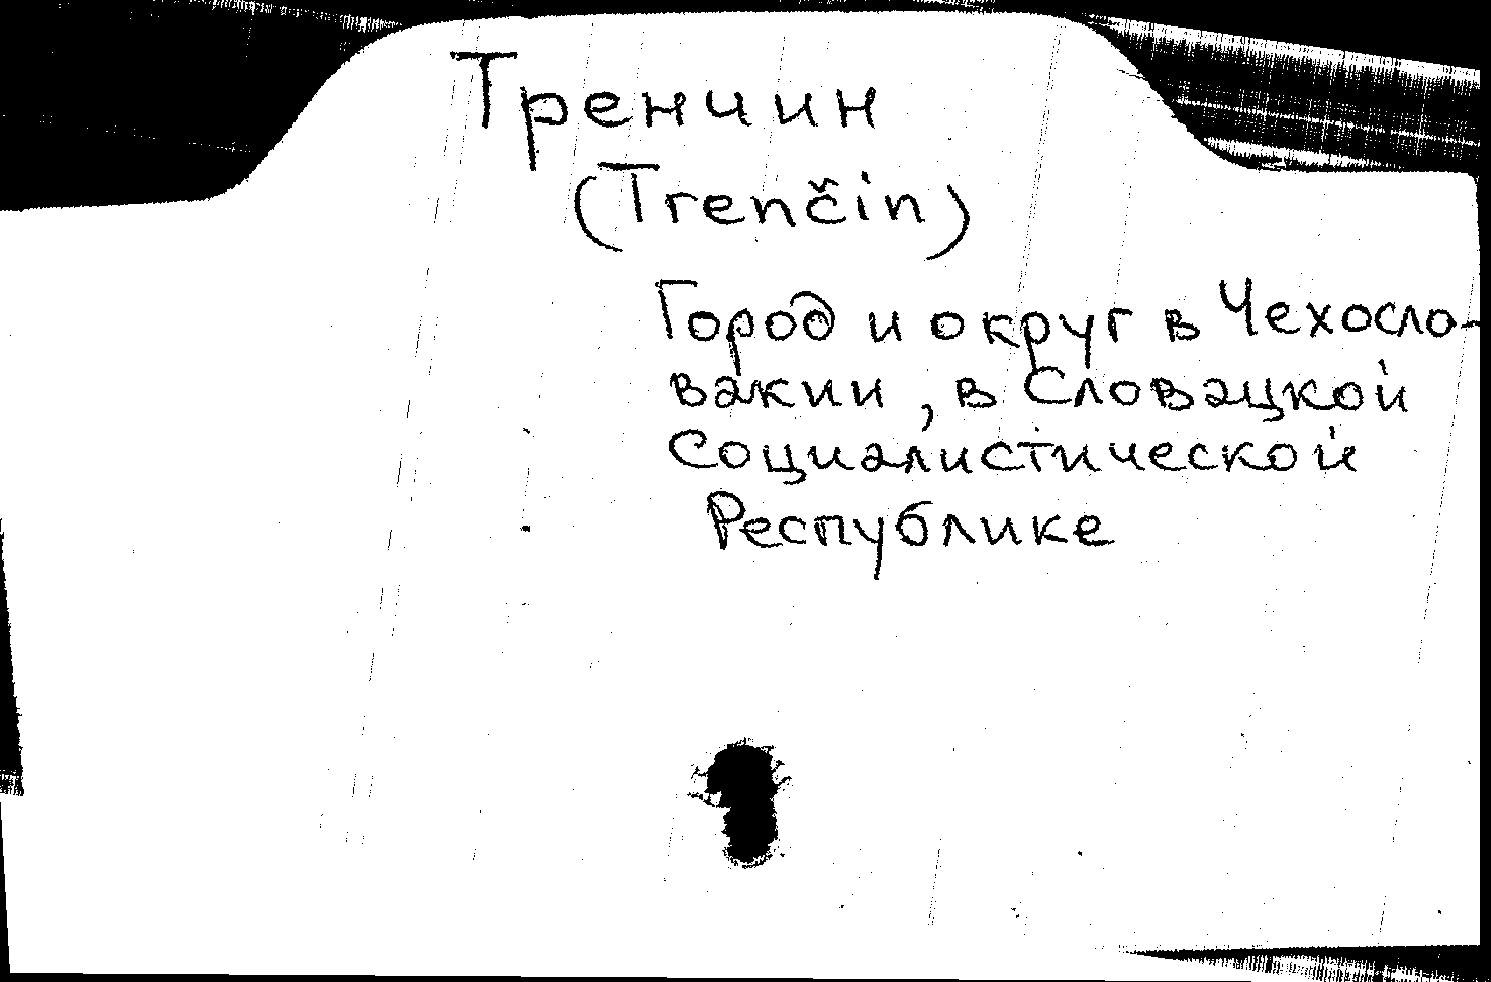 Тренчин
(Trenčin)
Город и округ в Чехосло-
вакии, в Словацкой
Социалистической
Республике